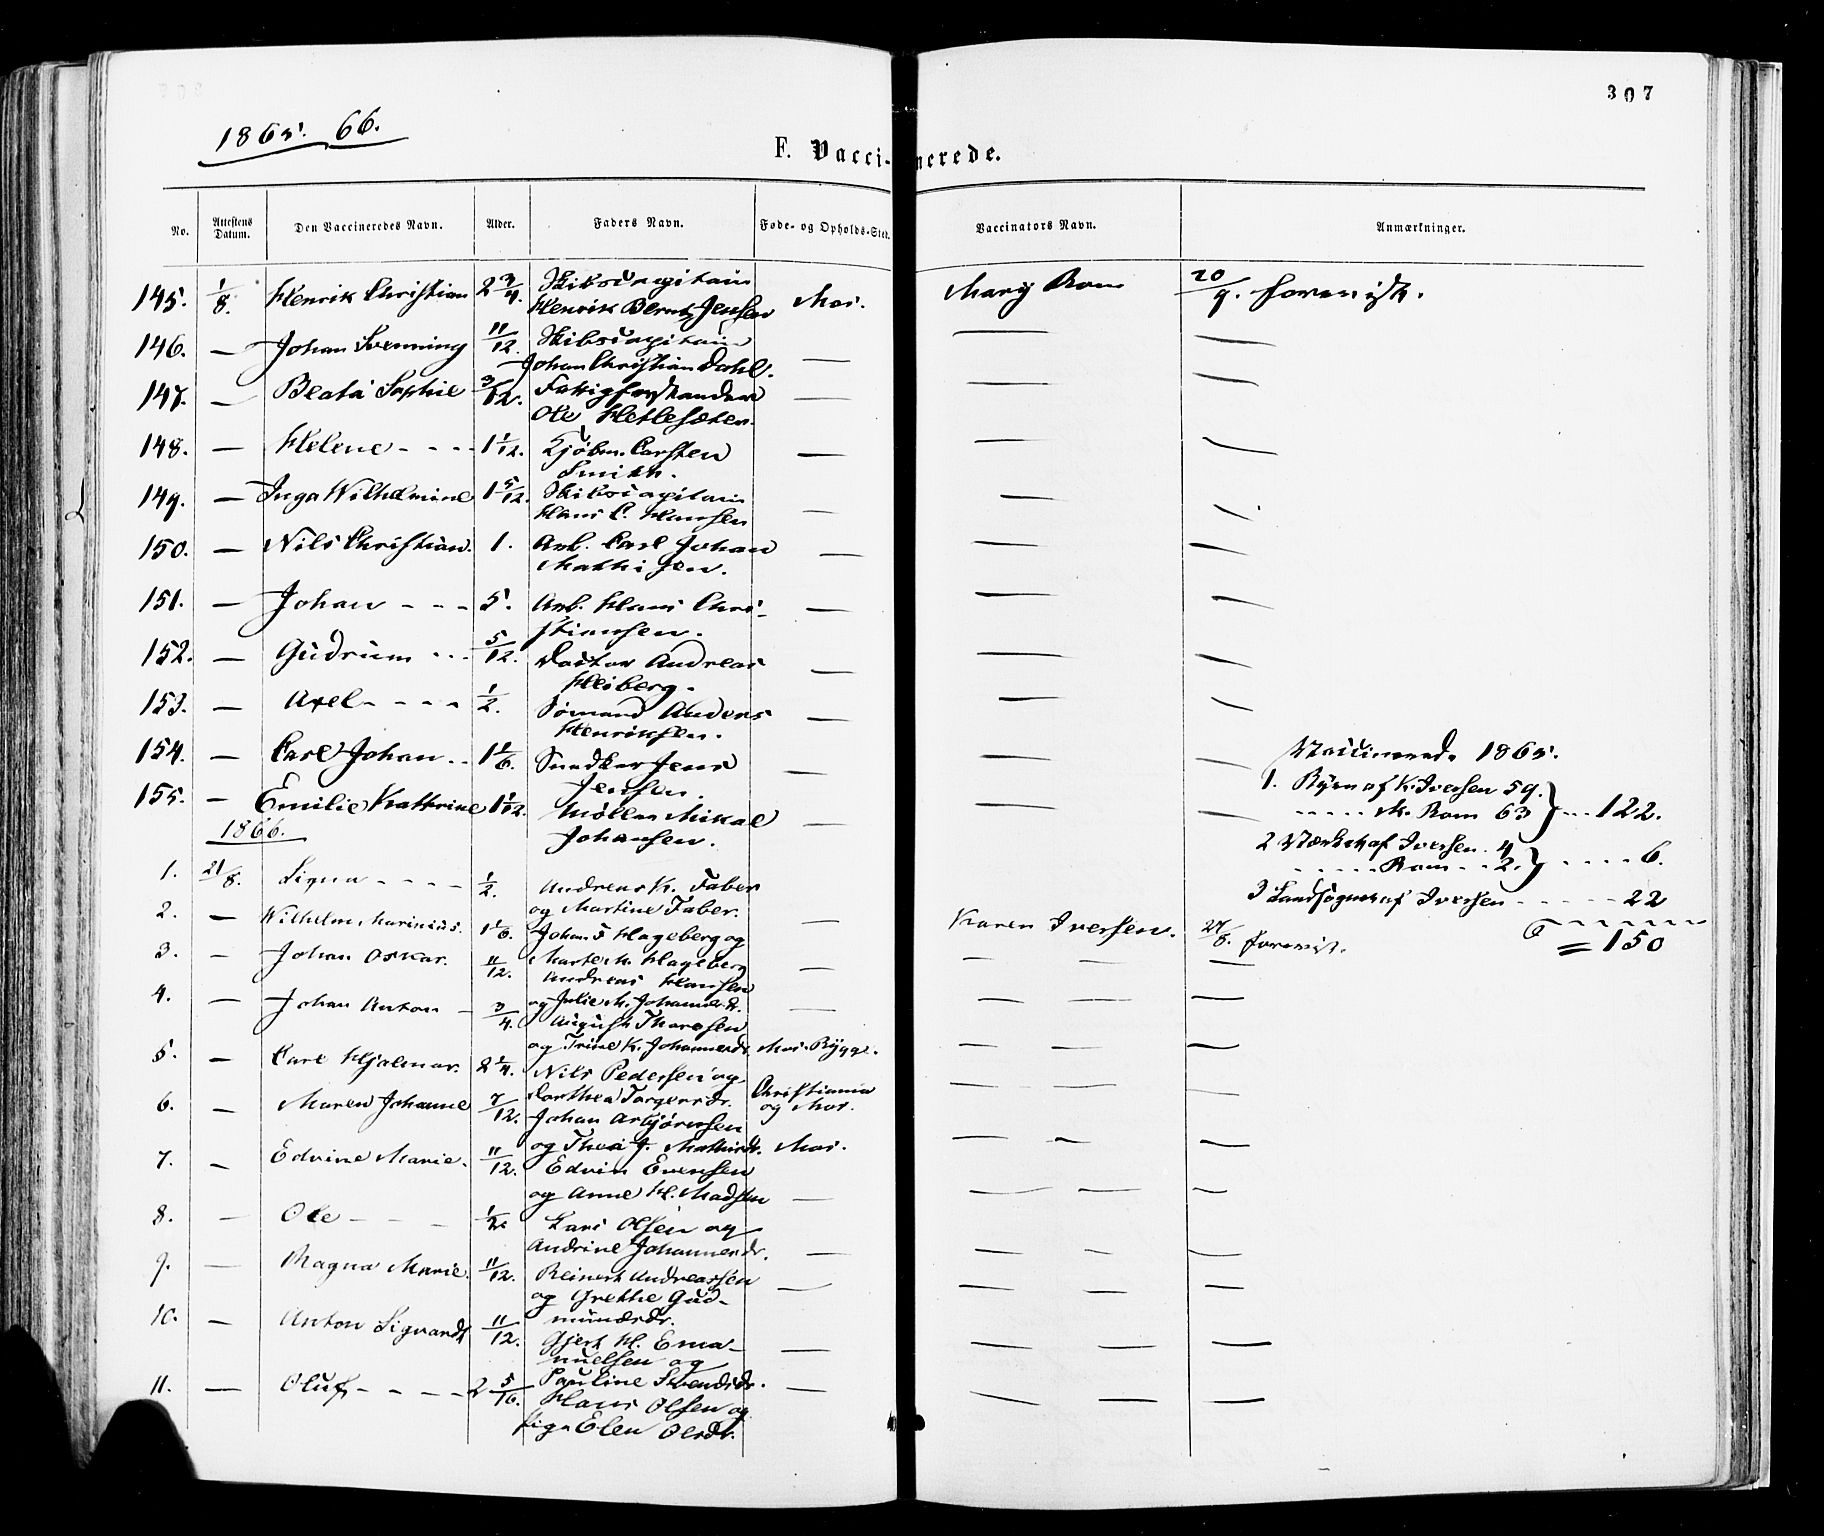 307
1865. 66.
F. Vaccinerede.
No. Attestens Datum. Den Vaccineredes Navn. Alder. Faders Navn. Føde- og Opholds-Sted. Vaccinators Navn. Anmærkninger.
145. 1/8. Henrik Christian 2 3/4. Skibscapitain Mos. Mary Rom 20/9. forevist.
Henrik Bernt Jensen
146. — Johan Svenning 11/12. Skibscapitain — — —
Johan Christian Dahl.
147. — Beata Sophie 3/12. Fattigforstander — — —
Ole Hetlesæter.
148. — Helene - - - 1 1/12. Kjøbm. Carsten — — —
Smith.
149. — Inga Wilhelmine 1 5/12. Skibscapitain — — —
Hans C. Hansen
150. — Nils Christian. 1. Arb. Carl Johan — — —
Mathisen.
151. — Johan - - - 5. Arb. Hans Chri- — — —
stiansen.
152. — Gudrum - - - 5/12. Doctor Andreas — — —
Heiberg.
153. — Axel - - - - 1/2. Sømand Anders — — —
Henriksen.
154. — Carl Johan - - 1 1/6. Snedker Jens — — —
Jensen.
155. — Emilie Kathrine 1 1/12. Møller Mikal — — —
Johansen.
Vaccinerede 1865.
1. Byen af K. Iversen 59.
- - - - - M. Rom 63 } - - - 122.
2 Værket af Iversen. 4
- - - - - - Rom - - 2. } - - - - - 6.
3 Landsognet af Iversen - - - - - - 22
= 150
1866.
1. 21/8. Signa - - - - 1/2. Andreas K. Faber
og Martine Faber. —
2. — Wilhelm Marinius. 1 1/6. Johan F Hageberg og Karen Iversen. 21/8. forevist.
Marte M. Hageberg
3. — Johan Oskar. 11/12. Andreas Hansen — — —
og Julie M. Johannesdr.
4. — Johan Anton - 3/4. August Thoresen — — —
og Trine K. Johannesdr. Mos. Rygge.
5. — Carl Hjalmar. 2 1/4. Nils Pedersen og — — —
Dorthea Torgersdr. Christiania og Mos.
6. — Maren Johanne 7/12. Johan Asbjørnsen — — —
og Thea J. Mathisdr. Mos.
7. — Edvine Marie. 11/12. Edvin Evensen — — —
og Anne H. Madsen —
8. — Ole - - - 1/2. Lars Olsen og — — —
Andrine Johannesdr. —
9. — Magna Marie. 11/12. Reinert Andreassen — — —
og Grethe Gud-
mundsdr.
10. — Anton Sigvardt 11/12. Gjert H. Ema- — — —
nuelsen og
Pauline Svendsdr.
11. — Oluf - - - - 2 5/16. Hans Olsen og — — —
Elen Olsdr.